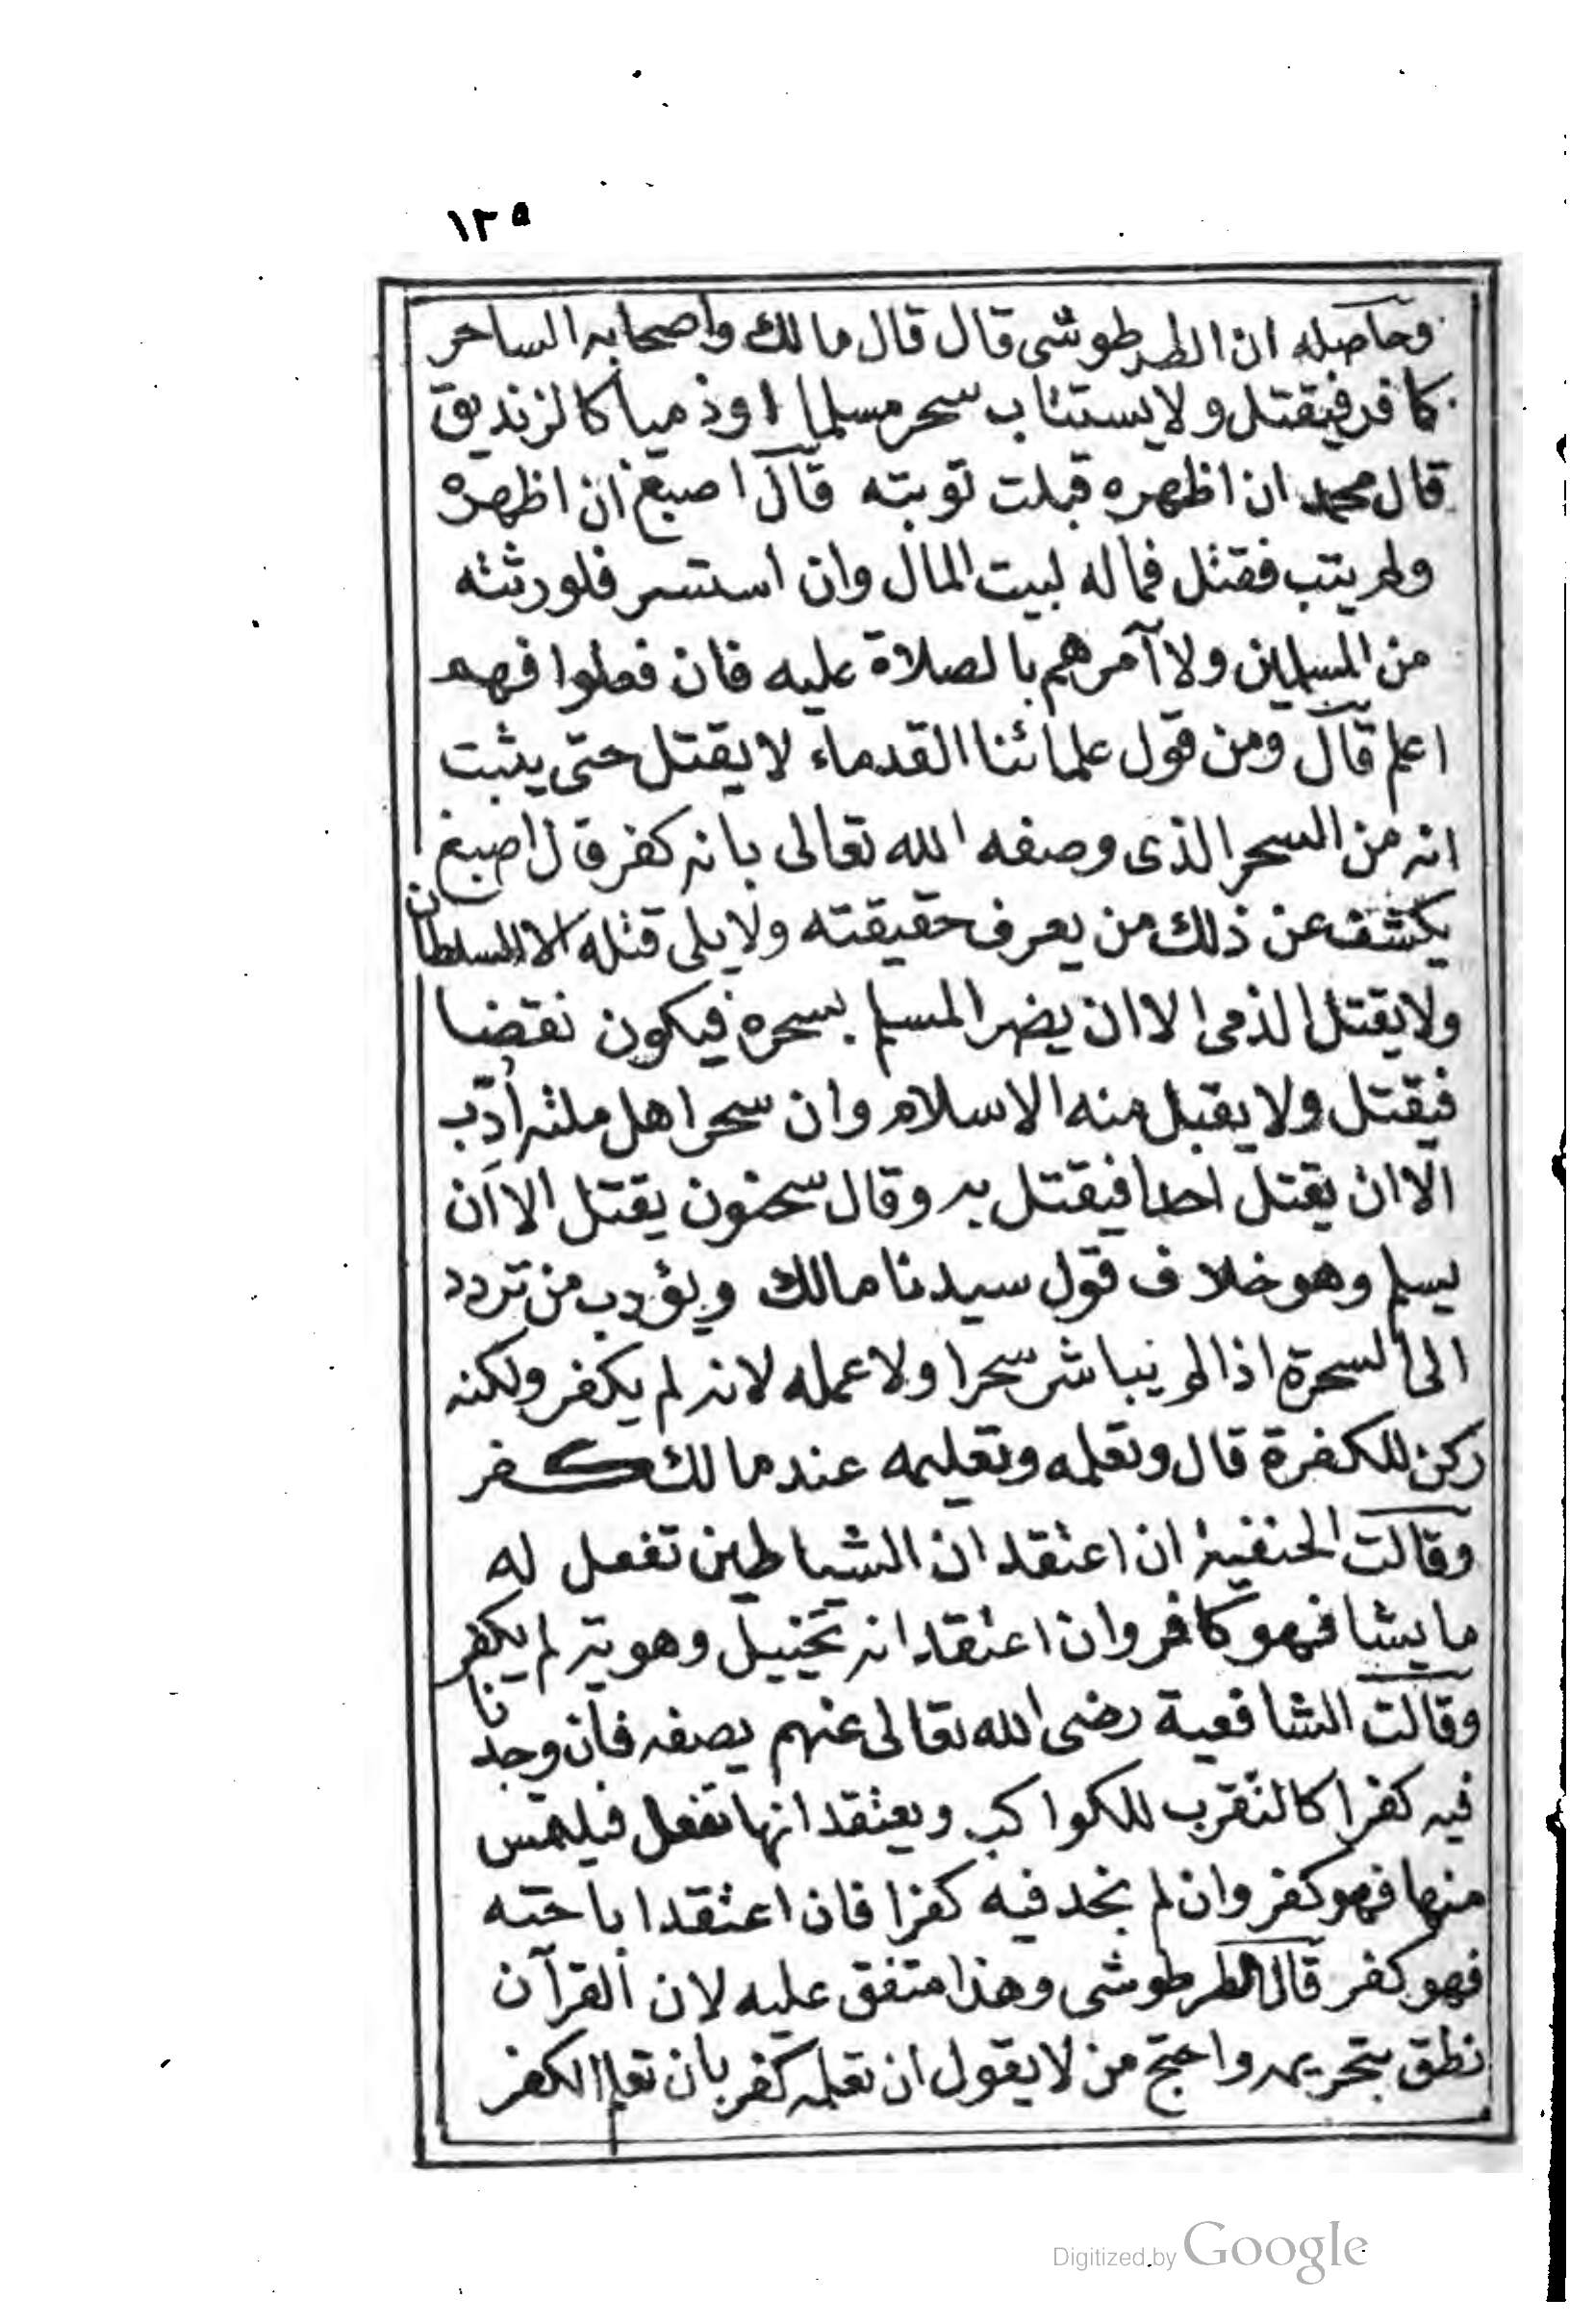 ١٣٥
وحاصله ان الطرطوشى قال قال مالك واصحابه الساحر
كافر فيقتل ولا يستتاب سحر مسلما او ذميا كالزنديق
قال محمد ان اظهره قبلت توبته قال اصبغ ان اظهره
ولم يتب فقتل فماله لبيت المال وان استسر فلورثته
من المسلمين ولا آمرهم بالصلاة عليه فان فعلوا فهم
اعلم قال ومن قول علمائنا القدماء لا يقتل حتى يثبت
انه من السحر الذى وصفه الله تعالى بانه كفر قال اصبغ
يكشف عن ذلك من يعرف حقيقته ولا يلى قتله الا السلطان
ولا يقتل الذمى الا ان يضر المسلم بسحره فيكون نقضا
فيقتل ولا يقبل منه الاسلام وان سحر اهل ملته أدّب
الا ان يقتل احدا فيقتل به وقال سحنون يقتل الا ان
يسلم وهو خلاف قول سيدنا مالك ويؤدب من تردد
الى السحرة اذا لم يباشر سحرا ولا عمله لانه لم يكفر ولكنه
ركن للكفرة قال وتعلمه وتعليمه عند مالك كفر
وقالت الحنفية ان اعتقد ان الشياطين تفعل له
ما يشا فهو كافر وان اعتقد انه تخييل وهو يه لم يكفر
وقالت الشافعية رضى الله تعالى عنهم يصفه فان وجدنا
فيه كفرا كالتقرب للكواكب ويعتقد انها تفعل فيلتمس
منها فهو كفر وان لم نجد فيه كفرا فان اعتقد اباحته
فهو كفر قال الطرطوشى وهذا متفق عليه لان القرآن
نطق بتحريمه واحتج من لا يقول ان تعلمه كفر بان تعلم الكفر
Digitized by Google